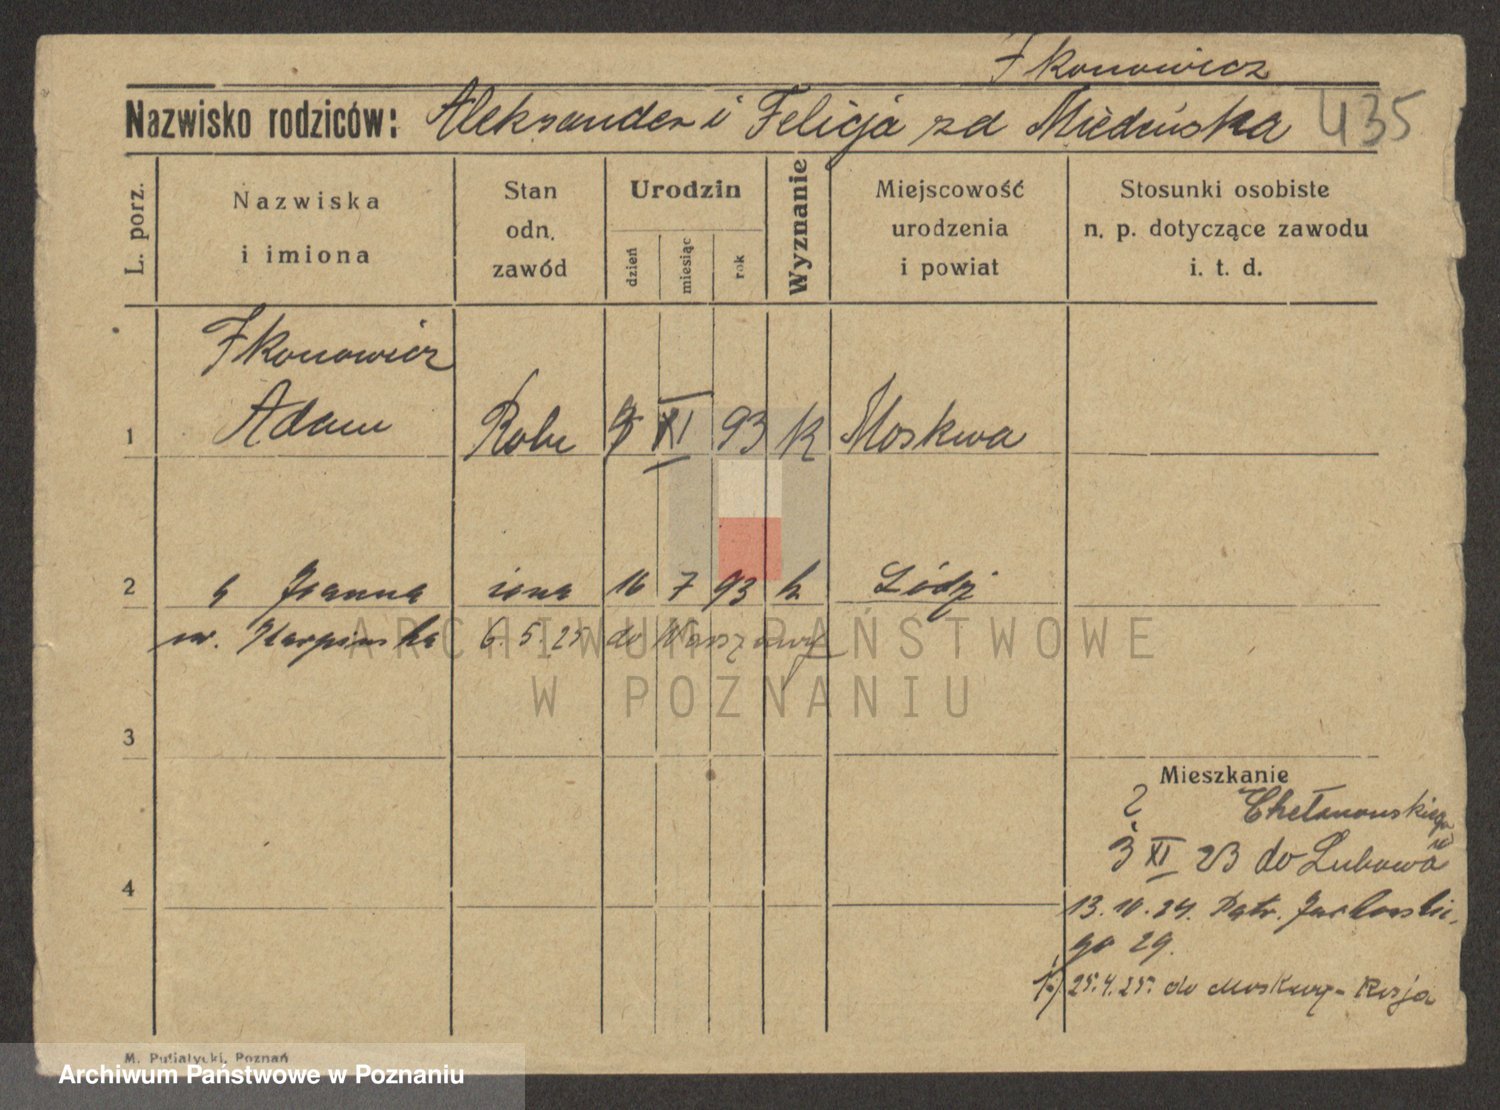 Ikonowicz
Nazwisko rodziców: Aleksander i Felicja zd Miedzińska 435
L. porz.
Nazwiska i imiona
Stan odn. zawód
Urodzin
dzień miesiąc rok
Wyznanie
Miejscowość urodzenia i powiat
Stosunki osobiste n. p. dotyczące zawodu i. t. d.
Ikonowicz
1 Adam Robn XI 93 k Moskwa
2 Joanna żona 16 7 93 k Łódź
ur. Karpinska 6.5.25 do Warszawy
3
Mieszkanie
Chełmonskiego
3 XI 23 do Lubowa
4
13.10.24. Patr. Jackowskie
go 29.
1) 25.4.25. do Moskwy - Rosja
M. Putiatycki, Poznań
ARCHIWUM PAŃSTWOWE
W POZNANIU
Archiwum Państwowe w Poznaniu